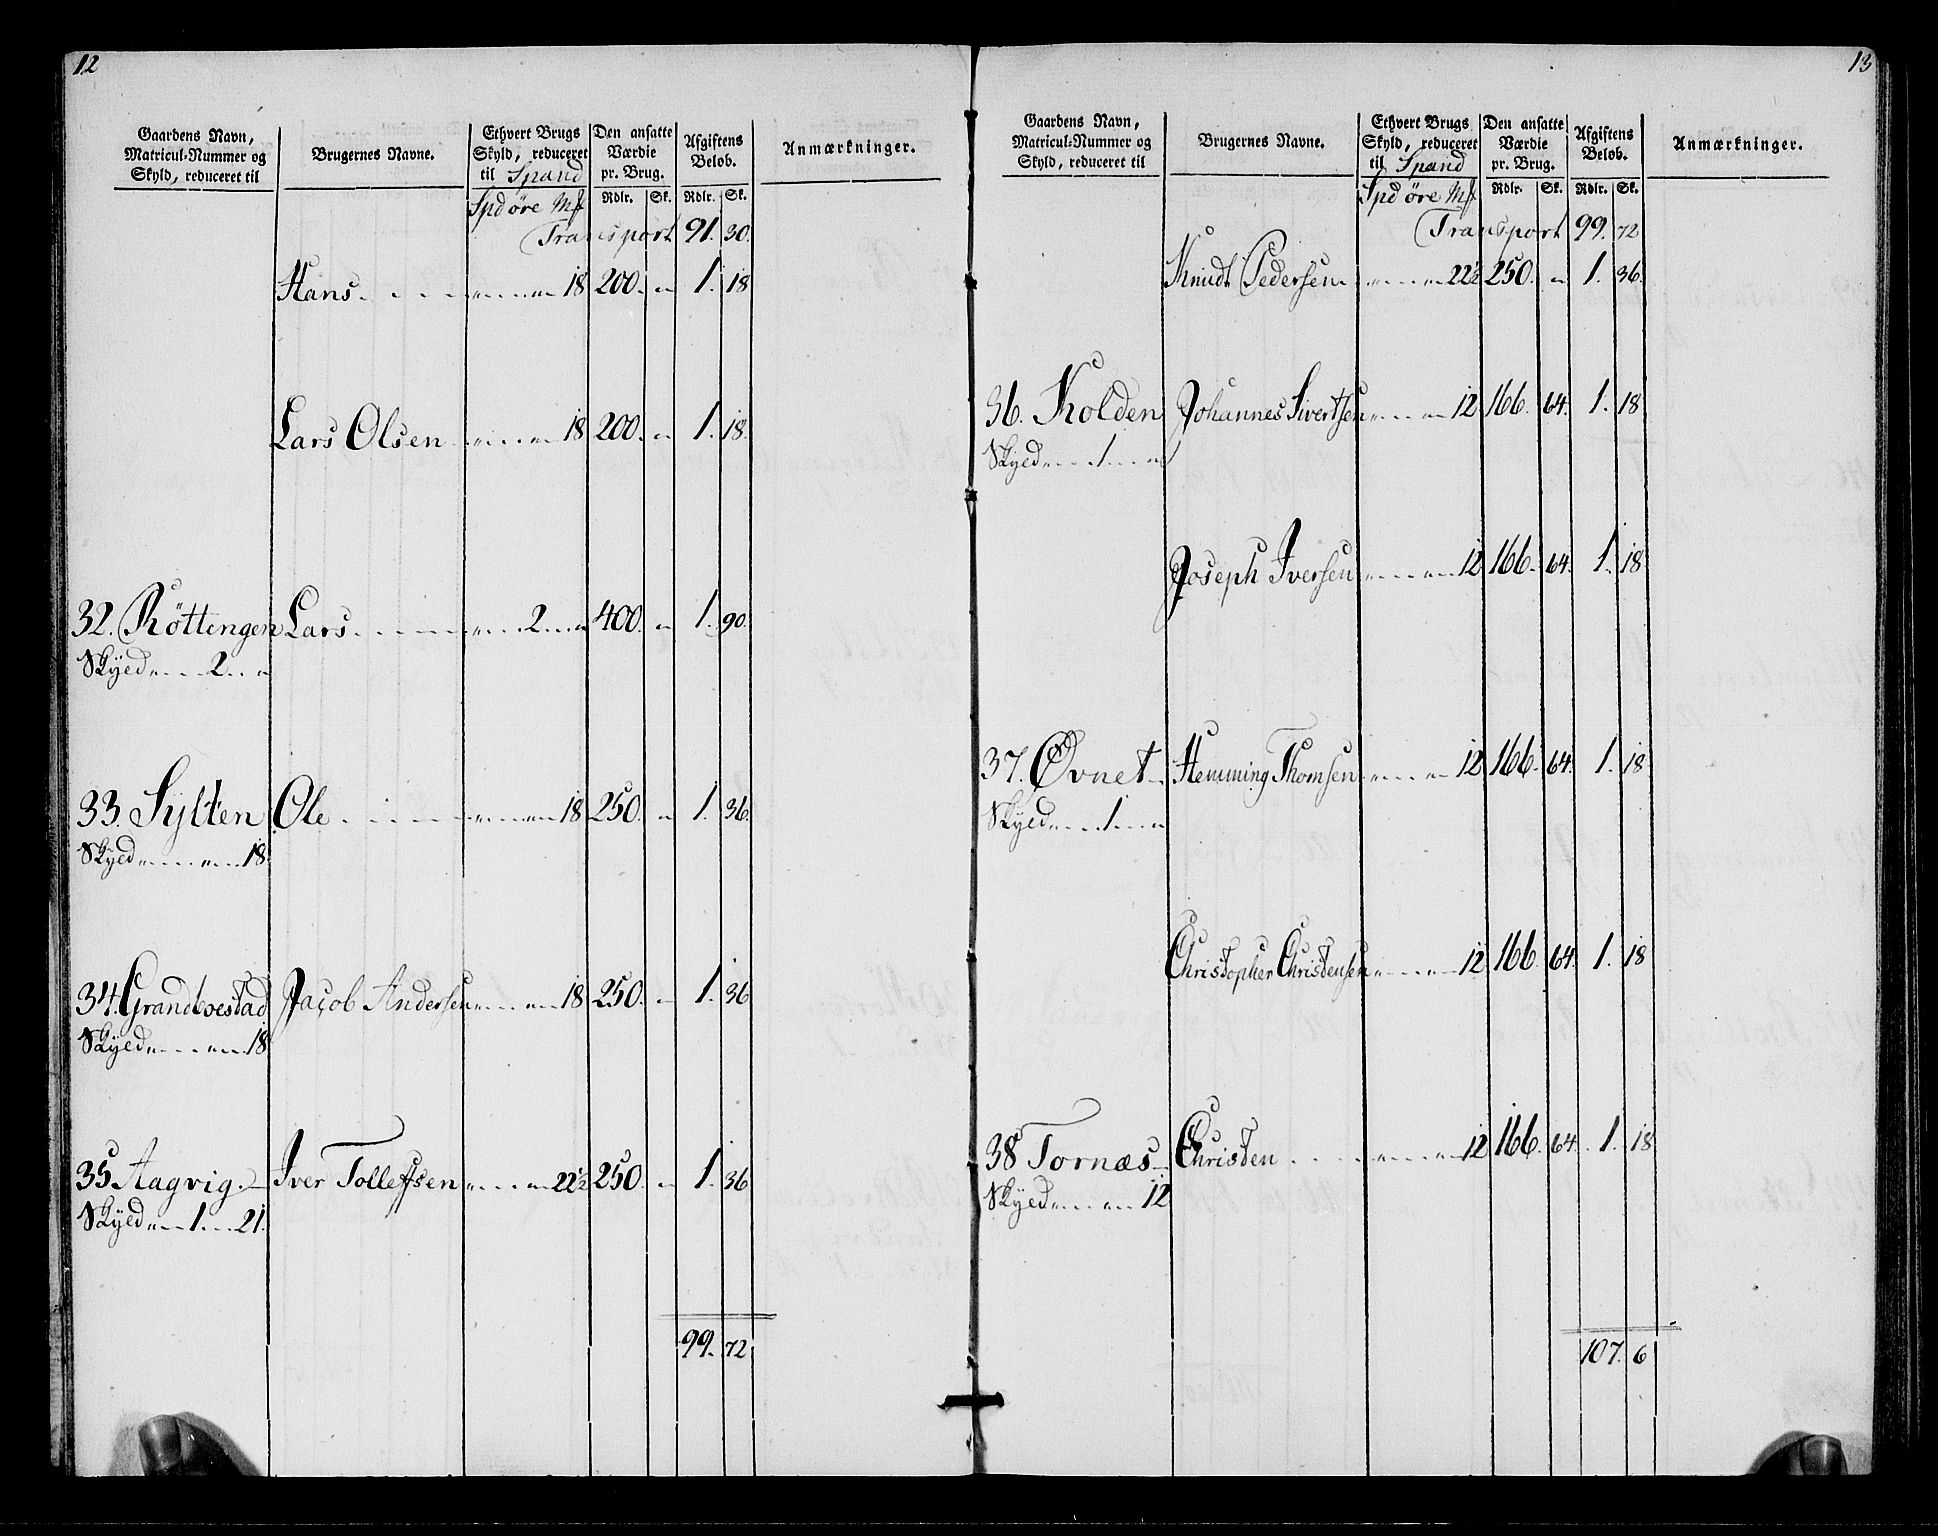 12
Gaardens Navn, Matricul-Nummer og Skyld, reduceret til
Brugernes Navne.
Ethvert Brugs Skyld, reduceret til Spand
Den ansatte Værdie pr. Brug.
Afgiftens Beløb.
Anmærkninger.
Rdlr. Sk. Rdlr. Sk.
Spd øre Mk
Transport 91. 30.
Hans. 18 200. " 1. 18
Lars Olsen 18 200. " 1. 18.
32. Røttingen Lars 2 " 400. " 1. 90.
Skyld " 2 "
33. Sylten Ole 18 250. " 1. 36.
Skyld " " 18.
34. Grandvestad Jacob Andersen " " 18 250. " 1. 36
Skyld " " 18
35. Aagvig. Iver Tollefsen " " 22½ 250. " 1. 36
Skyld " 1 " 21.
99. 72
13
Gaardens Navn, Matricul-Nummer og Skyld, reduceret til
Brugernes Navne.
Ethvert Brugs Skyld, reduceret til Spand
Den ansatte Værdie pr. Brug.
Afgiftens Beløb.
Anmærkninger.
Rdlr. Sk. Rdlr. Sk.
Spd øre Mk
Transport 99. 72
Knudt Pedersen " " 22½ 250. " 1. 36.
36. Kolden Johannes Sivertsen " " 12 166. 64. 1. 18
Skyld " 1 "
Joseph Iversen " " 12 166. 64. 1. 18
37. Øvnet Hemming Thomsen " " 12 166. 64. 1. 18
Skyld " 1 "
Christopher Christensen " " 12 166. 64. 1. 18
38 Tornæs Christen " " 12 166. 64. 1. 18
Skyld " " 12
107. 6